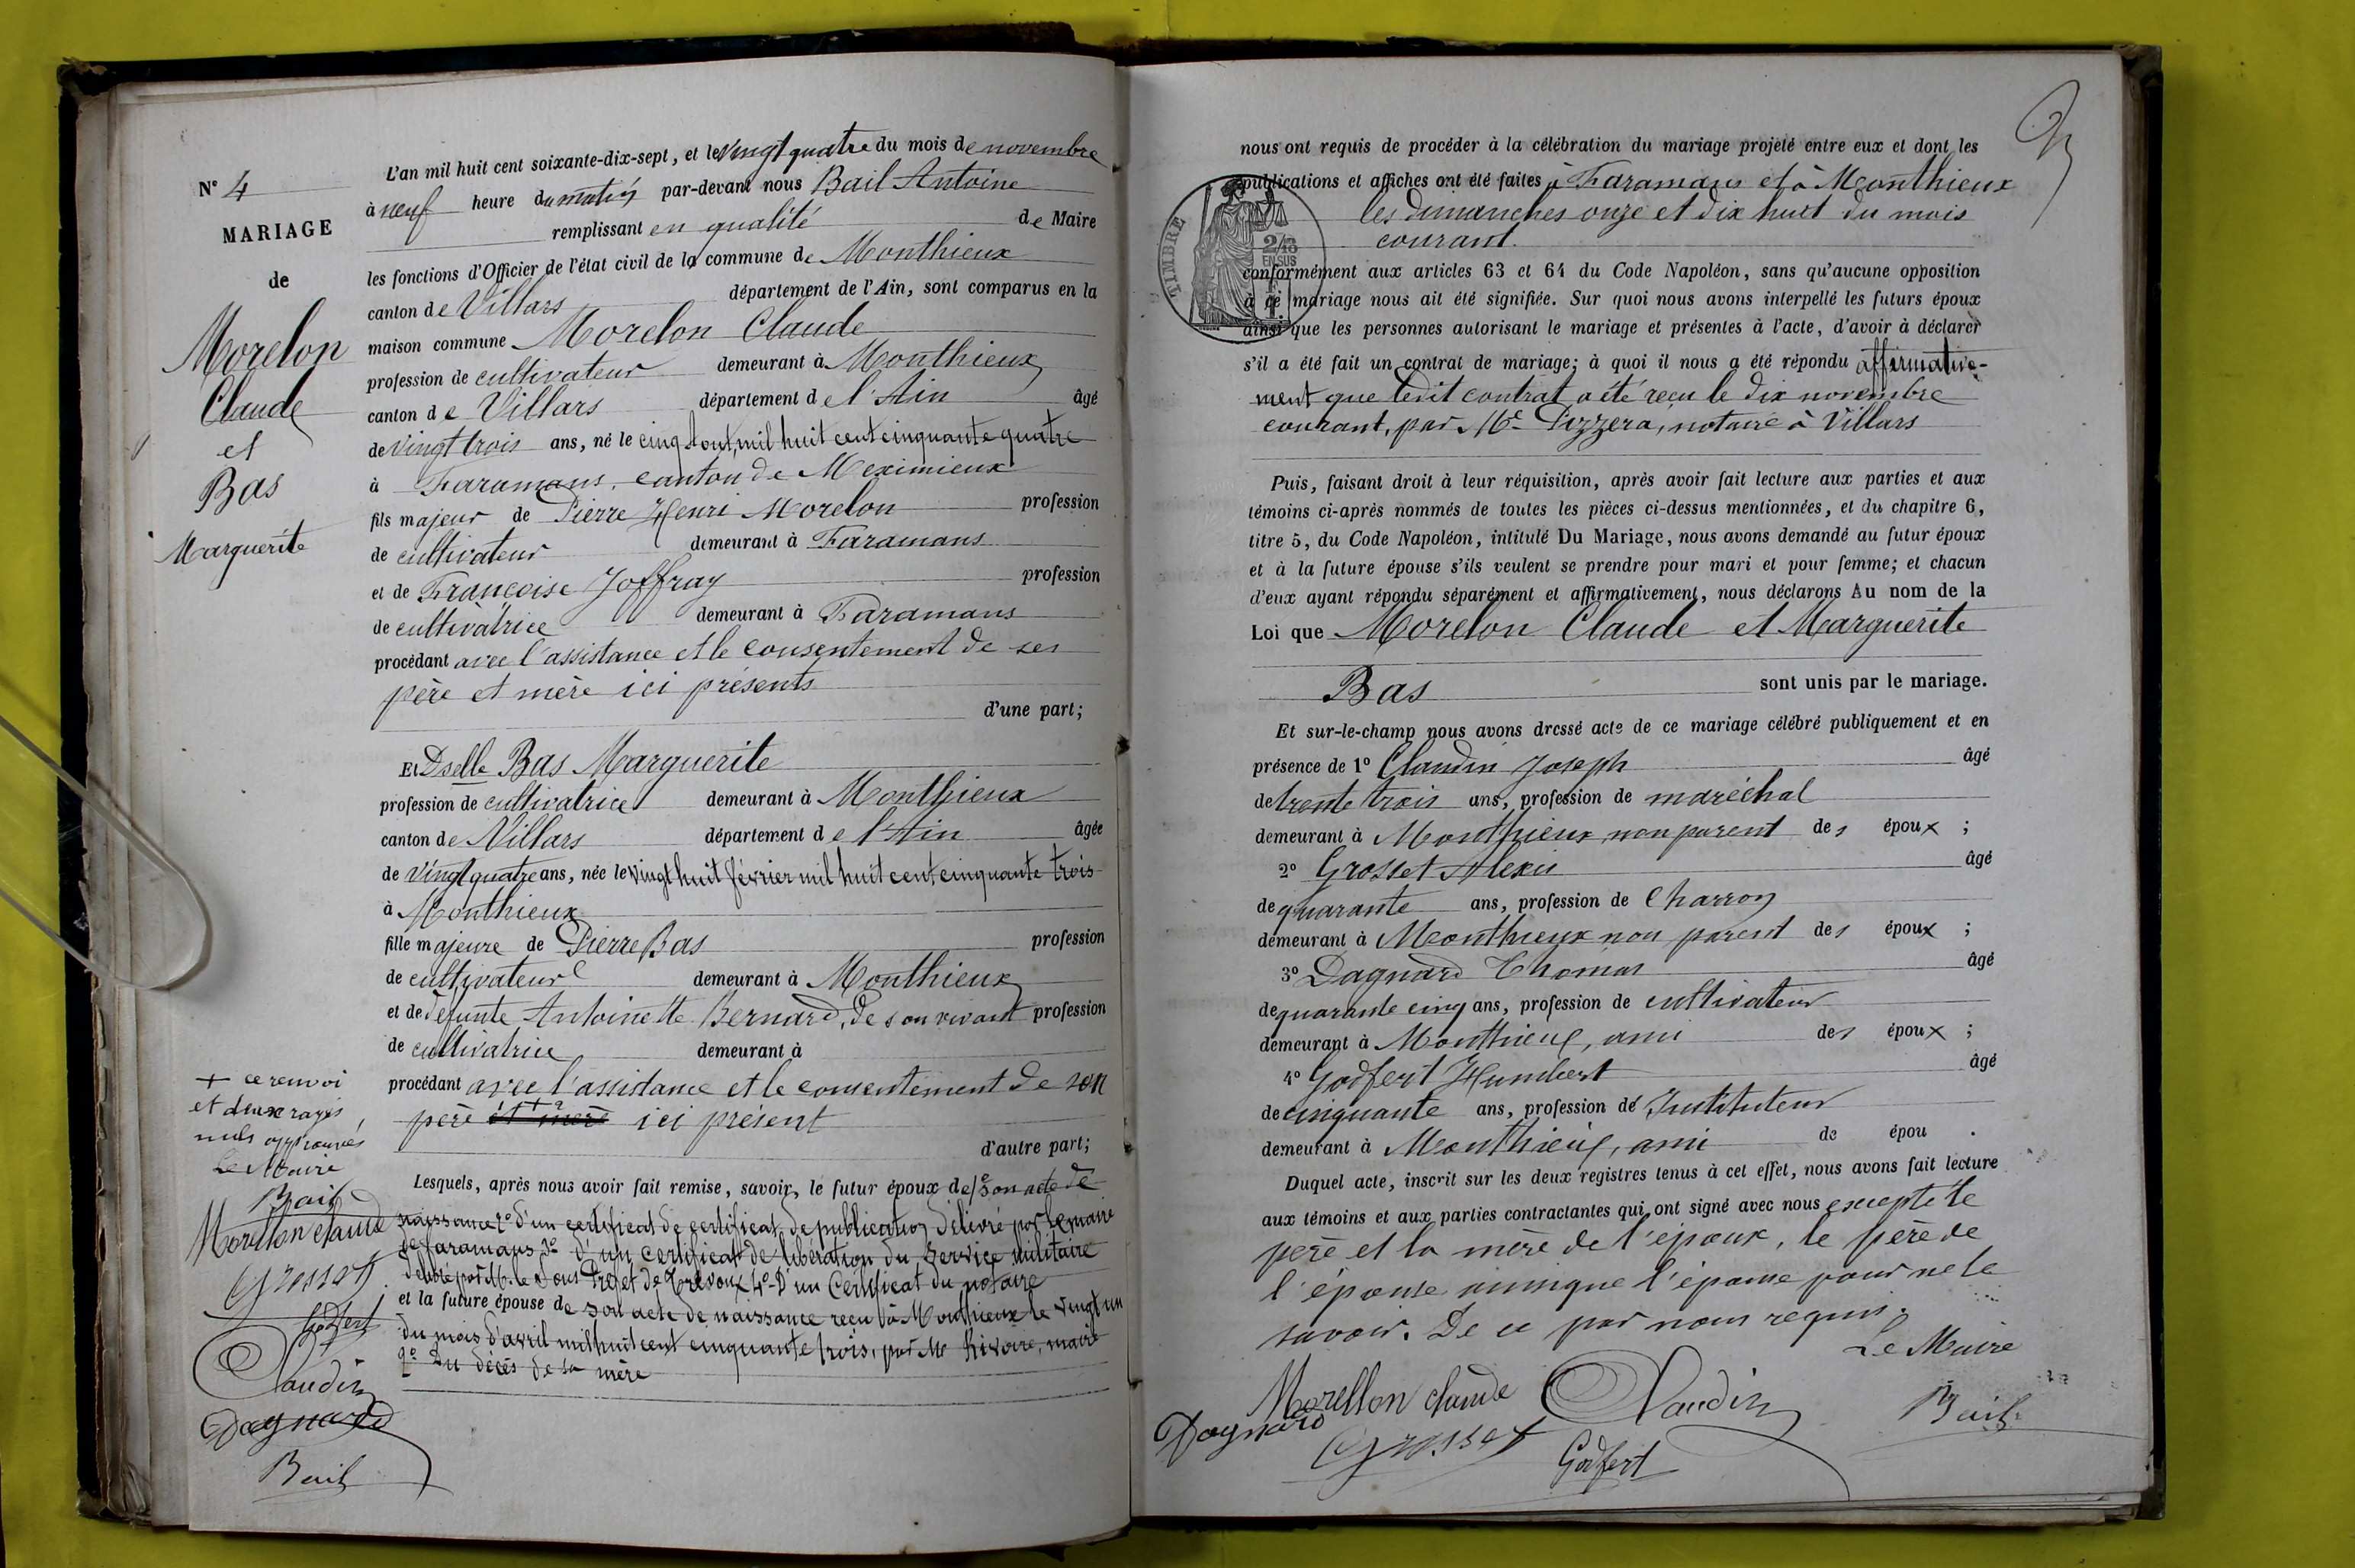 N° 4
MARIAGE
de
Morelon
Claude
et
Bas
Marguerite
L'an mil huit cent soixante-dix-sept, et le vingt quatre du mois de novembre
à neuf heure du matin par-devant nous Bail Antoine
remplissant en qualité de Maire
les fonctions d'Officier de l'état civil de la commune de Monthieux
canton de Villars département de l'Ain, sont comparus en la
maison commune Morelon Claude
profession de cultivateur demeurant à Monthieux
canton de Villars département de l'Ain âgé
de vingt trois ans, né le cinq aout mil huit cent cinquante quatre
à Faramans, canton de Meximieux
fils majeur de Pierre Henri Morelon profession
de cultivateur demeurant à Faramans
et de Françoise Joffray profession
de cultivatrice demeurant à Faramans
procédant avec l'assistance et le consentement de ses
père et mère ici présents
d'une part;
Et Dselle Bas Marguerite
profession de cultivatrice demeurant à Monthieux
canton de Villars département de l'Ain âgée
de vingt quatre ans, née le vingt huit février mil huit cent cinquante trois
à Monthieux
fille majeure de Pierre Bas profession
de cultivateur demeurant à Monthieux
et de défunte Antoinette Bernard, de son vivant profession
de cultivatrice demeurant à
procédant avec l'assistance et le consentement de son
père et mère ici présent
d'autre part;
+ ce renvoi
et deux rayés
nuls approuvés
Le Maire
Bail
Morellon claude
Grosset
Godfert
Claudin
Dagnard
Bail
Lesquels, après nous avoir fait remise, savoir, le futur époux de 1° son acte de
naissance 2° d'un certificat de certificat de publication délivré par le maire
de Faramans 3° d'un certificat de libération du service militaire
délivré par M. le Sous Préfet de Trévoux 4° D'un Certificat du notaire
et la future épouse de son acte de naissance reçu à Monthieux le vingt un
du mois d'avril mil huit cent cinquante trois, par Mr Rivoire, maire
2° Du décès de sa mère
nous ont requis de procéder à la célébration du mariage projeté entre eux et dont les
publications et affiches ont été faites à Faramans et à Monthieux
les dimanches onze et dix huit du mois
courant.
TIMBRE
2/10
EN SUS
conformément aux articles 63 et 64 du Code Napoléon, sans qu'aucune opposition
à ce mariage nous ait été signifiée. Sur quoi nous avons interpellé les futurs époux
ainsi que les personnes autorisant le mariage et présentes à l'acte, d'avoir à déclarer
s'il a été fait un contrat de mariage; à quoi il nous a été répondu affirmative-
ment que ledit contrat a été reçu le dix novembre
courant, par Me Pizzera, notaire à Villars
Puis, faisant droit à leur réquisition, après avoir fait lecture aux parties et aux
témoins ci-après nommés de toutes les pièces ci-dessus mentionnées, et du chapitre 6,
titre 5, du Code Napoléon, intitulé Du Mariage, nous avons demandé au futur époux
et à la future épouse s'ils veulent se prendre pour mari et pour femme; et chacun
d'eux ayant répondu séparément et affirmativement, nous déclarons Au nom de la
Loi que Morelon Claude et Marguerite
Bas sont unis par le mariage.
Et sur-le-champ nous avons dressé acte de ce mariage célébré publiquement et en
présence de 1° Claudin Joseph âgé
de trente trois ans, profession de maréchal
demeurant à Monthieux non parent des époux ;
2° Grosset Alexis âgé
de quarante ans, profession de Charron
demeurant à Monthieux non parent des époux ;
3° Dagnard Thomas âgé
de quarante cinq ans, profession de cultivateur
demeurant à Monthieux, ami des époux ;
4° Godfert Humbert âgé
de cinquante ans, profession de Instituteur
demeurant à Monthieux, ami de épou .
Duquel acte, inscrit sur les deux registres tenus à cet effet, nous avons fait lecture
aux témoins et aux parties contractantes qui ont signé avec nous excepté le
père et la mère de l'époux, le père de
l'épouse ainsique l'épouse pour ne le
savoir. De ce par nous requis.
Le Maire
Morellon claude Claudin Bail
Dagnard Grosset Godfert